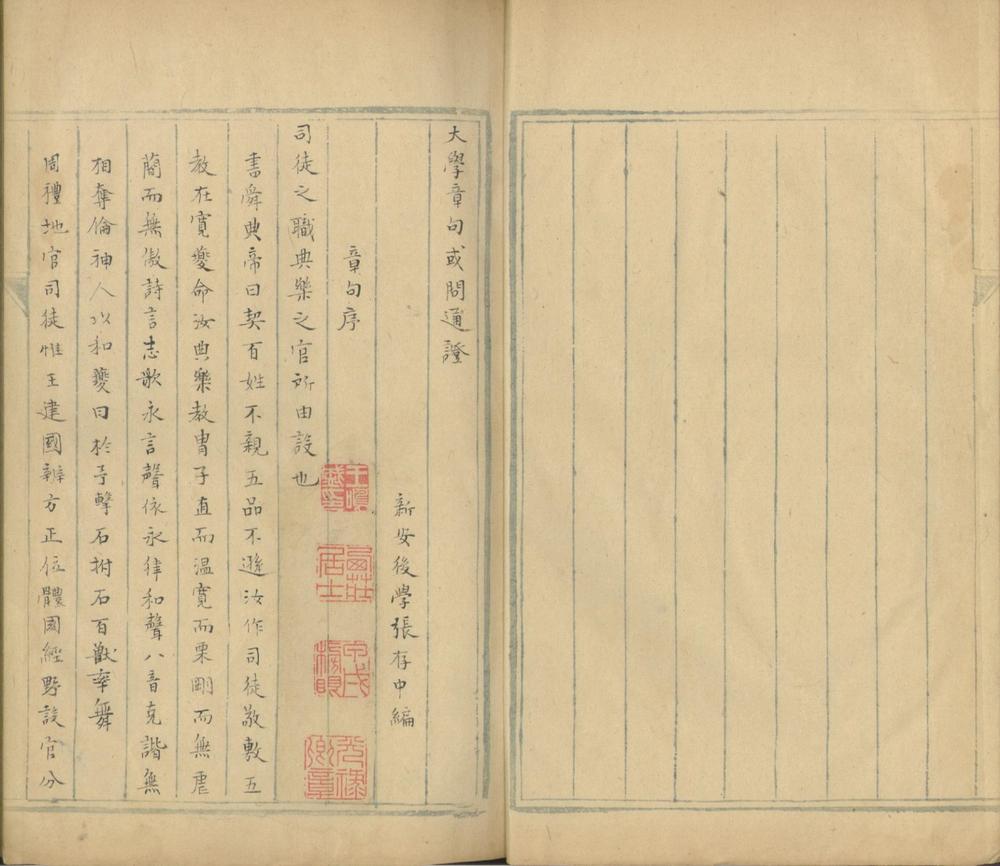 大學章句或問通證
新安後學張存中編
章句序
司徒之職典樂之官所由設也
書舜典帝曰契百姓不親五品不遜汝作司徒敬敷五
教在寬夔命汝典樂教胄子直而温寬而栗剛而無虐
簡而無傲詩言志歌永言聲依永律和聲八音克諧無
相奪倫神人以和夔曰於予擊石拊石百獸率舞
周禮地官司徒惟王建國辨方正位體國經野設官分
王鳴盛印
居士
甲戌榜眼
光祿卿章